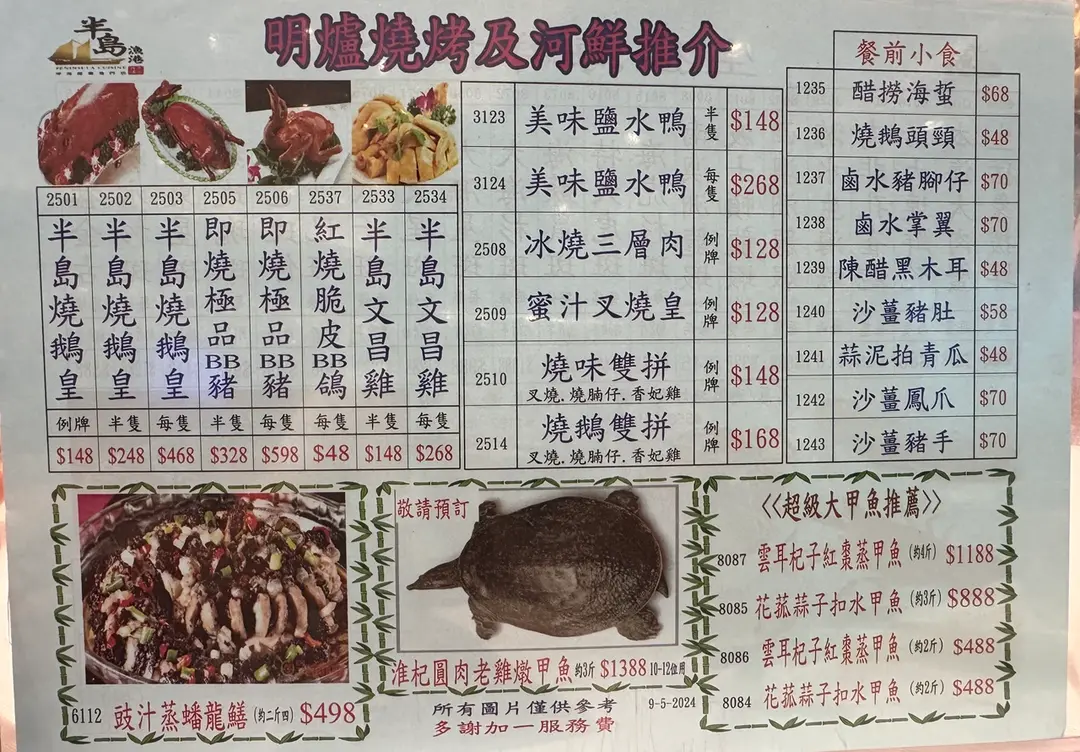 半島
漁港
PENINSULA CUISINE
明爐燒烤及河鮮推介
2501 2502 2503 2505 2506 2537 2533 2534
半島燒鵝皇 半島燒鵝皇 半島燒鵝皇 即燒極品BB豬 即燒極品BB豬 紅燒脆皮BB鴿 半島文昌雞 半島文昌雞
例牌 半隻 每隻 半隻 每隻 每隻 半隻 每隻
$148 $248 $468 $328 $598 $48 $148 $268
3123 美味鹽水鴨 半隻 $148
3124 美味鹽水鴨 每隻 $268
2508 冰燒三層肉 例牌 $128
2509 蜜汁叉燒皇 例牌 $128
2510 燒味雙拼 例牌 $148
叉燒.燒腩仔.香妃雞
2514 燒鵝雙拼 例牌 $168
叉燒.燒腩仔.香妃雞
餐前小食
1235 醋撈海蜇 $68
1236 燒鵝頭頸 $48
1237 鹵水豬腳仔 $70
1238 鹵水掌翼 $70
1239 陳醋黑木耳 $48
1240 沙薑豬肚 $58
1241 蒜泥拍青瓜 $48
1242 沙薑鳳爪 $70
1243 沙薑豬手 $70
6112 豉汁蒸蟠龍鱔(約二斤四) $498
敬請預訂
淮杞圓肉老雞燉甲魚約3斤 $1388 10-12位用
<<超級大甲魚推薦>>
8087 雲耳杞子紅棗蒸甲魚(約4斤) $1188
8085 花菰蒜子扣水甲魚(約3斤) $888
8086 雲耳杞子紅棗蒸甲魚(約2斤) $488
8084 花菰蒜子扣水甲魚(約2斤) $488
所有圖片僅供參考
多謝加一服務費
9-5-2024